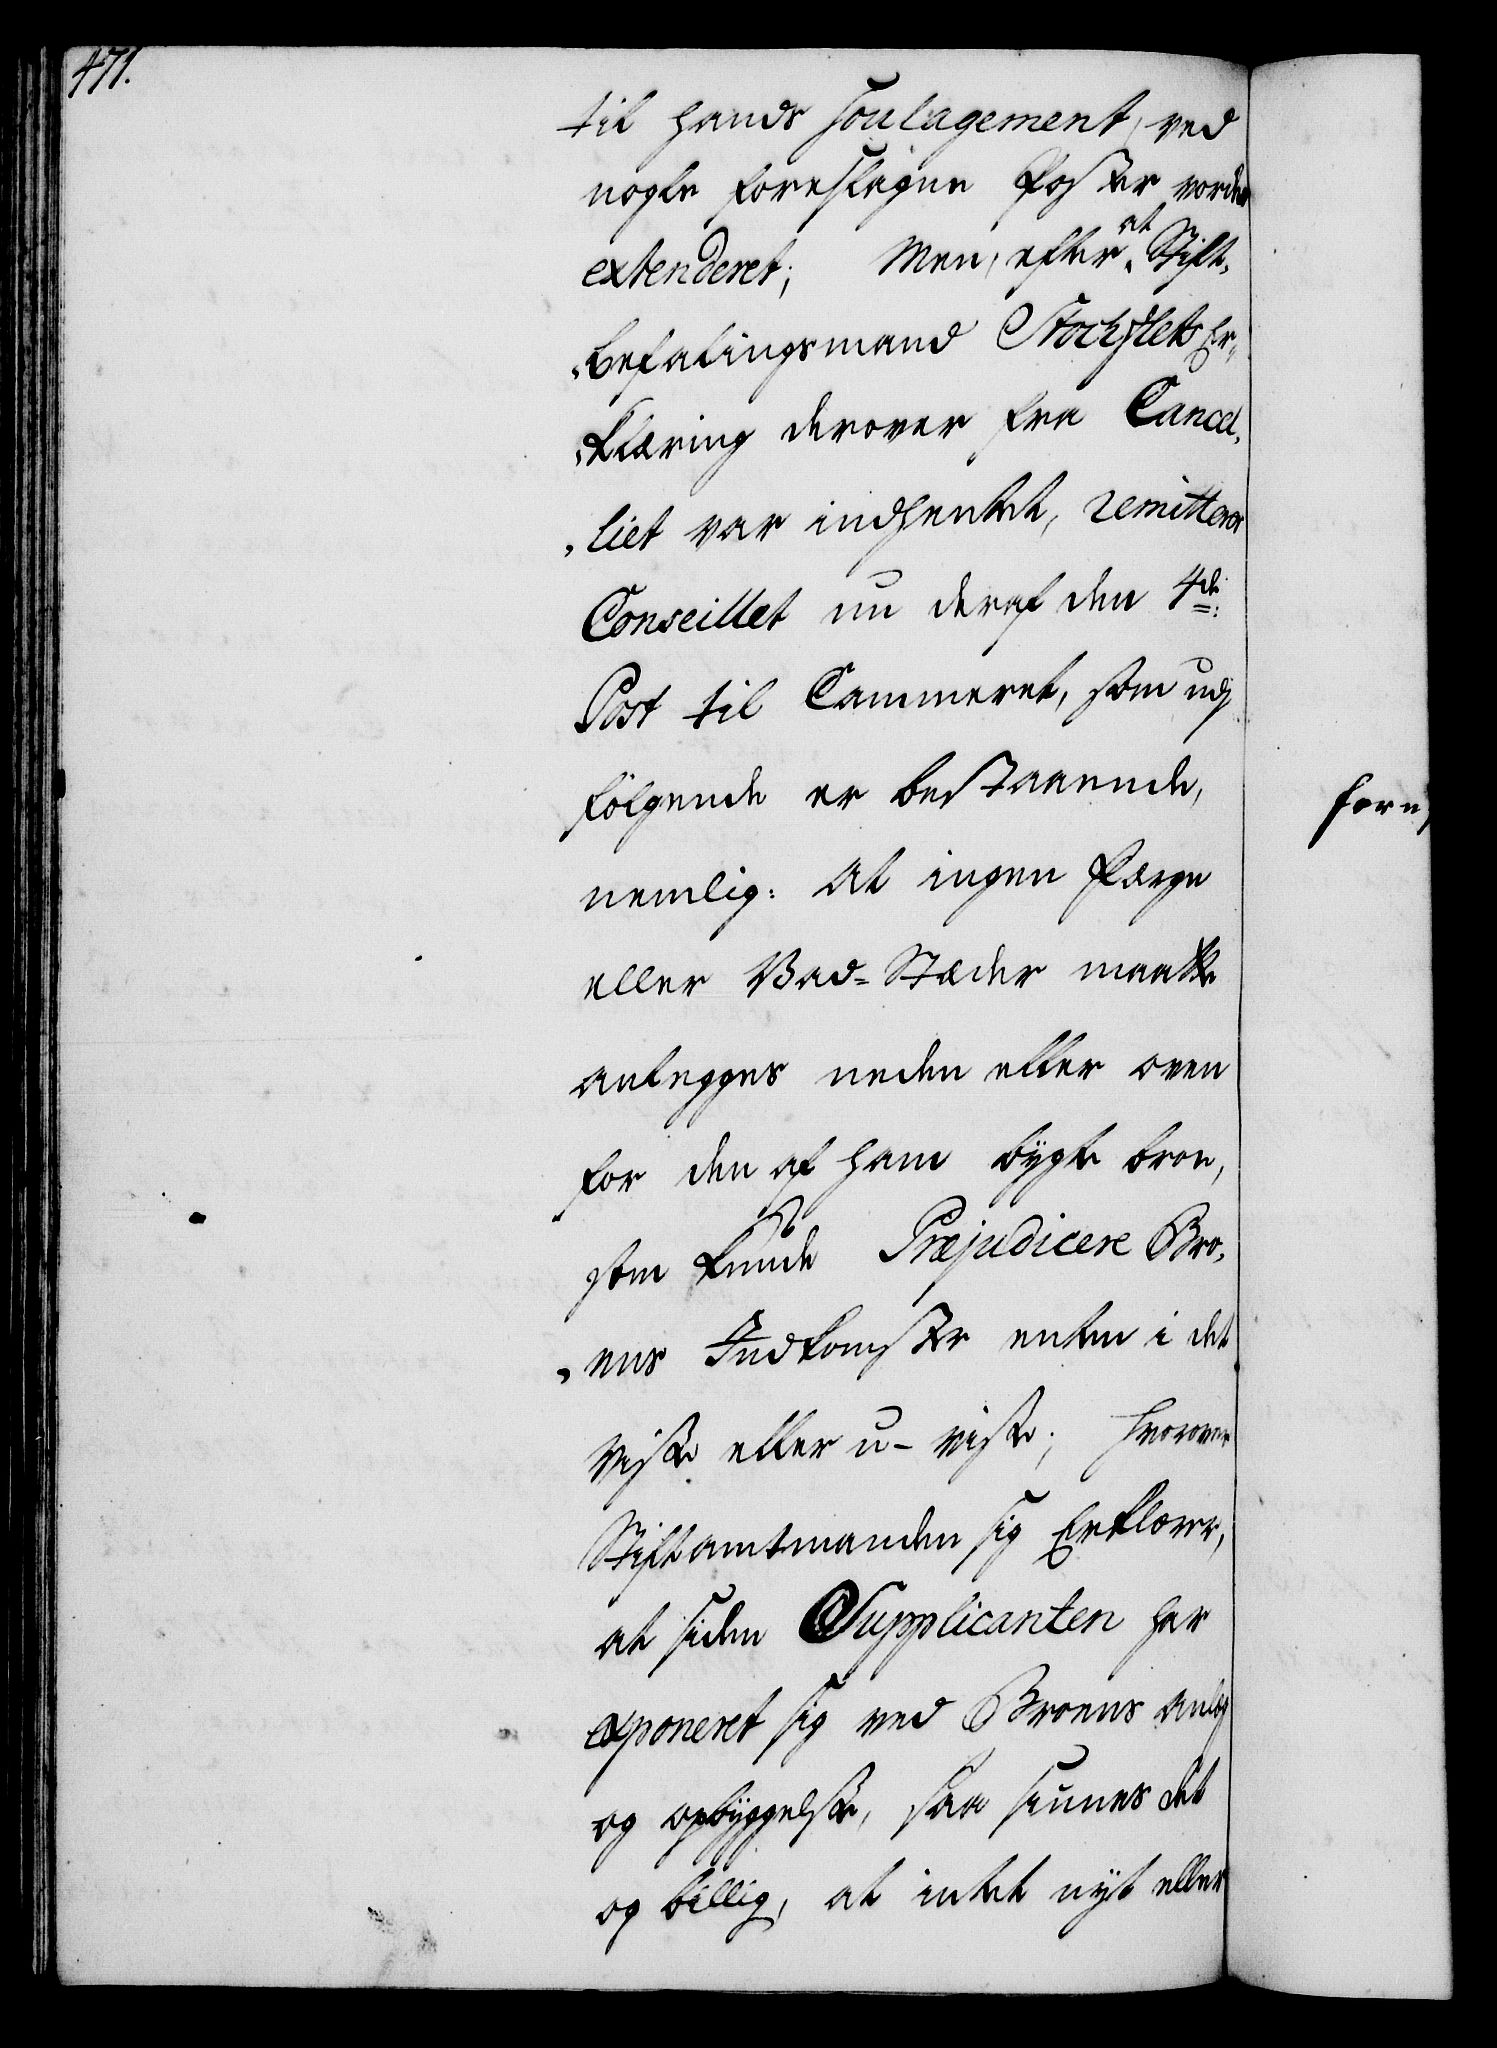 471.
til hands Soulagement, ved
nogle foreslagne Poster vorden
extenderet; Men, efter at Stift-
befalingsmand Stochflets Er-
klæring derover fra Cancel-
liet var indhentet, remitterer
Conseillet nu deraf den 4de
Post til Cammeret, som udj
følgende er bestaaende,
nemlig: At ingen Færge
eller Vad-Stæder maatte
anlegges neden eller oven
for den af ham bygte broe,
som kunde Præjudicere Bro-
ens Indkomster enten i det
viste eller u-viste; hvorover
Stiftamtmanden sig Erklærer,
at siden Supplicanten har
exponeret sig ved Broens anlæg
og opbyggelse, saa siunes det
og billig, at intet nyt eller